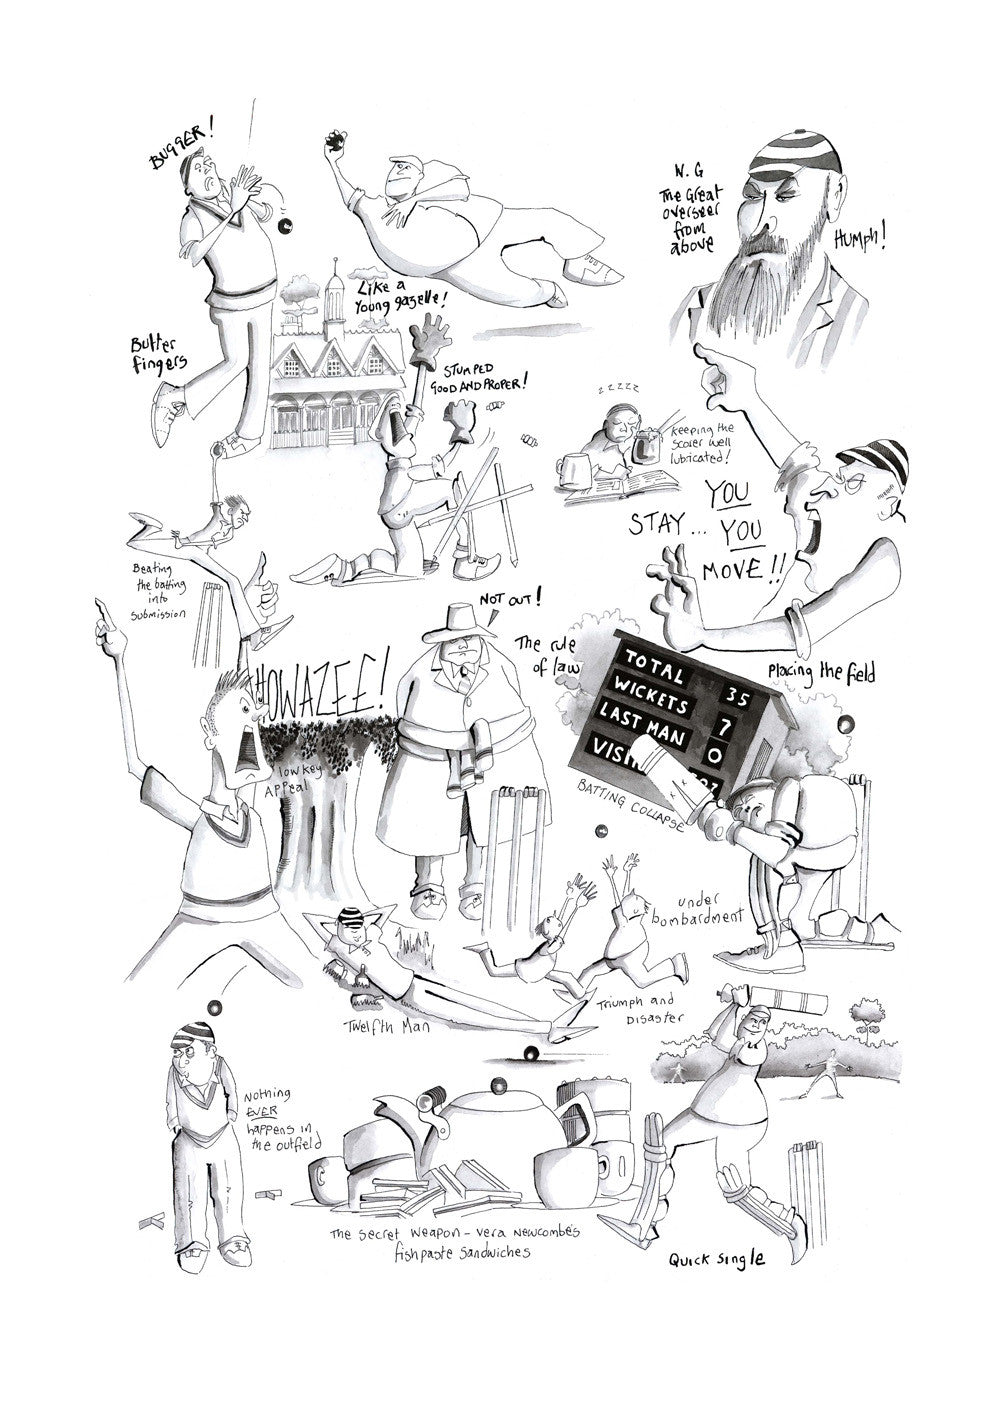 BUGGER!
Like a
Young gazelle!
N.G
The Great
overseer
from
above
HUMPH!
Butter
fingers
STUMPED
GOOD AND PROPER!
zzzzz
Keeping the
scorer well
lubricated!
YOU
STAY...
YOU
MOVE!!
Beating
the batting
into
submission
NOT OUT!
The rule
of law
Placing the field
HOWAZEE!
low key
APPeal
TOTAL 35
WICKETS 7
LAST MAN 0
BATTING COLLAPSE
under
bombardment
Twelfth Man
Triumph and
DISaster
Nothing
EVER
happens in
the outfield
The Secret Weapon - Vera Newcombe's
fishpaste sandwiches
Quick single